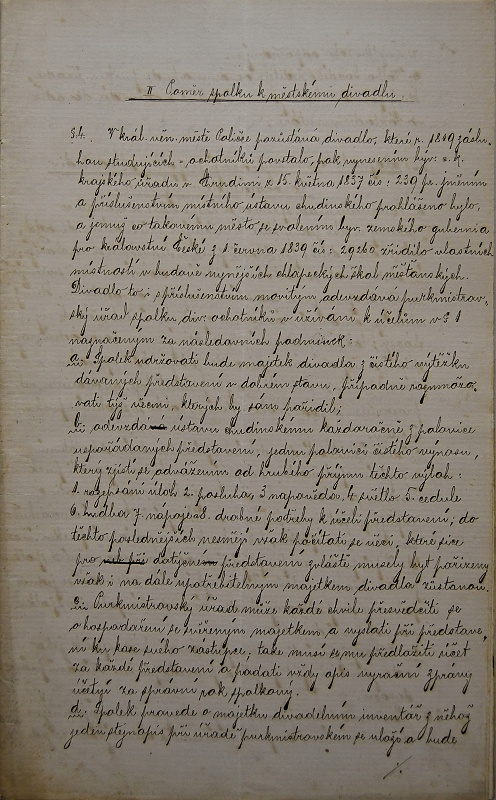 II Poměr spolku k městskému divadlu
§ 4. V král. věn. městě Poličce pozůstává divadlo, které r. 1819 zásluhou
hou studujících - ochotníků povstalo, pak vynesením býv. c. k.
krajského úřadu v Chrudimi z 15. května 1837 čís: 239 pr. jměním
a příslušenstvím místního ústavu chudinského prohlášeno bylo,
a jemuž co takovému město se svolením býv. zemského gubernia
pro království České z 1 června 1839 čís: 29260 zřídilo vlastních
místností v budově nynějších chlapeckých škol měšťanských.
Divadlo to i s příslušenstvím movitým, odevzdává purkmistrov-
ský úřad spolku div. ochotníků v užívání k účelům v § 1
naznačeným za následovních podmínek:
a., Spolek udržovati bude majetek divadla z čistého výtěžku
dávaných představení v dobrém stavu, případně rozmnožo-
vati týž věcmi, kterých by sám pořídil;
b., odevzdá ústavu chudinskému každoročně z polovice
uspořádaných představení, jednu polovici čistého výnosu,
který zjistí se, odvážením od hrubého příjmu těchto výloh:
1. rozepsání úloh 2. posluha, 3 napovědov, 4 světlo 5. cedule
6. hudba 7. nápoje 8. drobné potřeby k účeli představení; do
těchto poslednějších nesmějí však počítati se věci, které sice
pro dotyčném představení zvláště musely být pořízeny
však i na dále upotřebitelným majetkem divadla zůstanou.
c., Purkmistrovský úřad může každé chvíle přesvědčiti se
o hospodaření se svěřeným majetkem a vyslati při představe-
ní ku kase svého zástupce, také musí se mu předložiti účet
za každé představení a podati vždy opis výroční zprávy
účetní za správní rok spolkový.
d., Spolek provede o majetku divadelním inventář z něhož
jeden stejnopis při úřadě purkmistrovském se uloží a bude